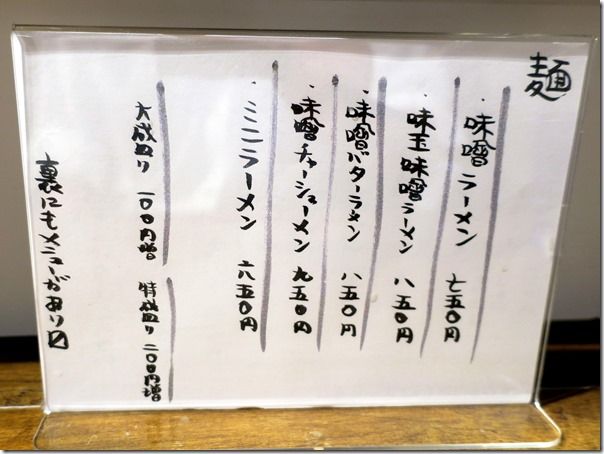 麺
・味噌ラーメン 七五〇円
・味玉味噌ラーメン 八五〇円
・味噌バターラーメン 八五〇円
・味噌チャーシューメン 九五〇円
・ミニラーメン 六五〇円
大盛り 一〇〇円増 特盛り 二〇〇円増
裏にもメニューがあり〼